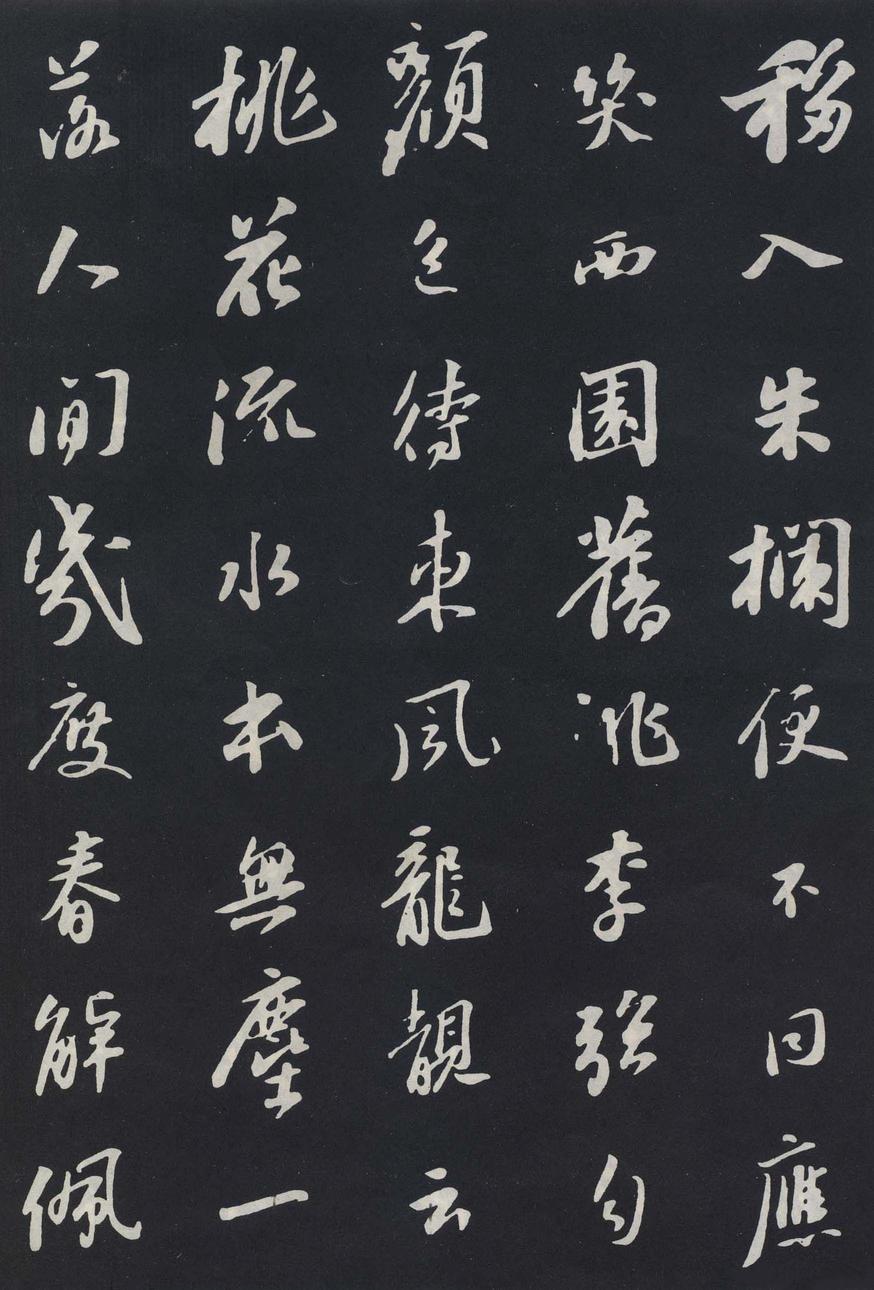 移入朱欄便不同應
笑西園舊桃李強勻
顏色待東風龍靚云
桃花流水本無塵一
落人間幾度春解佩